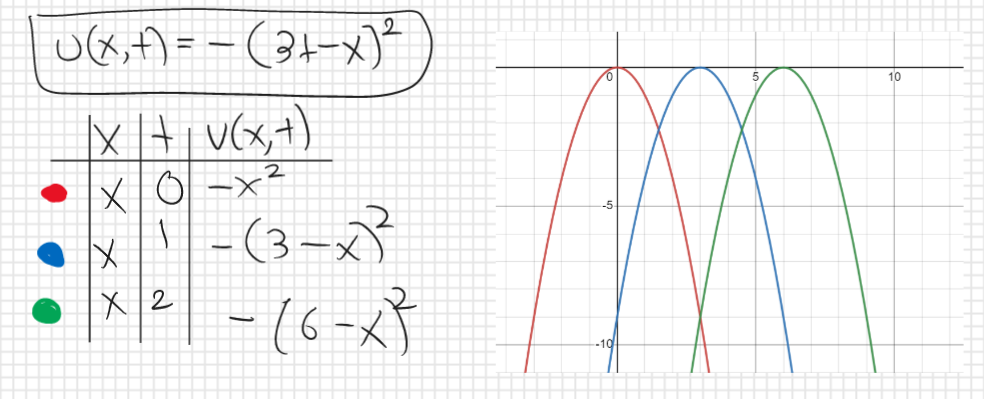 U(x,t) = -(3t-x)²
x t U(x,t)
x 0 -x²
x 1 -(3-x)²
x 2 -(6-x)²
0 5 10
-5
-10